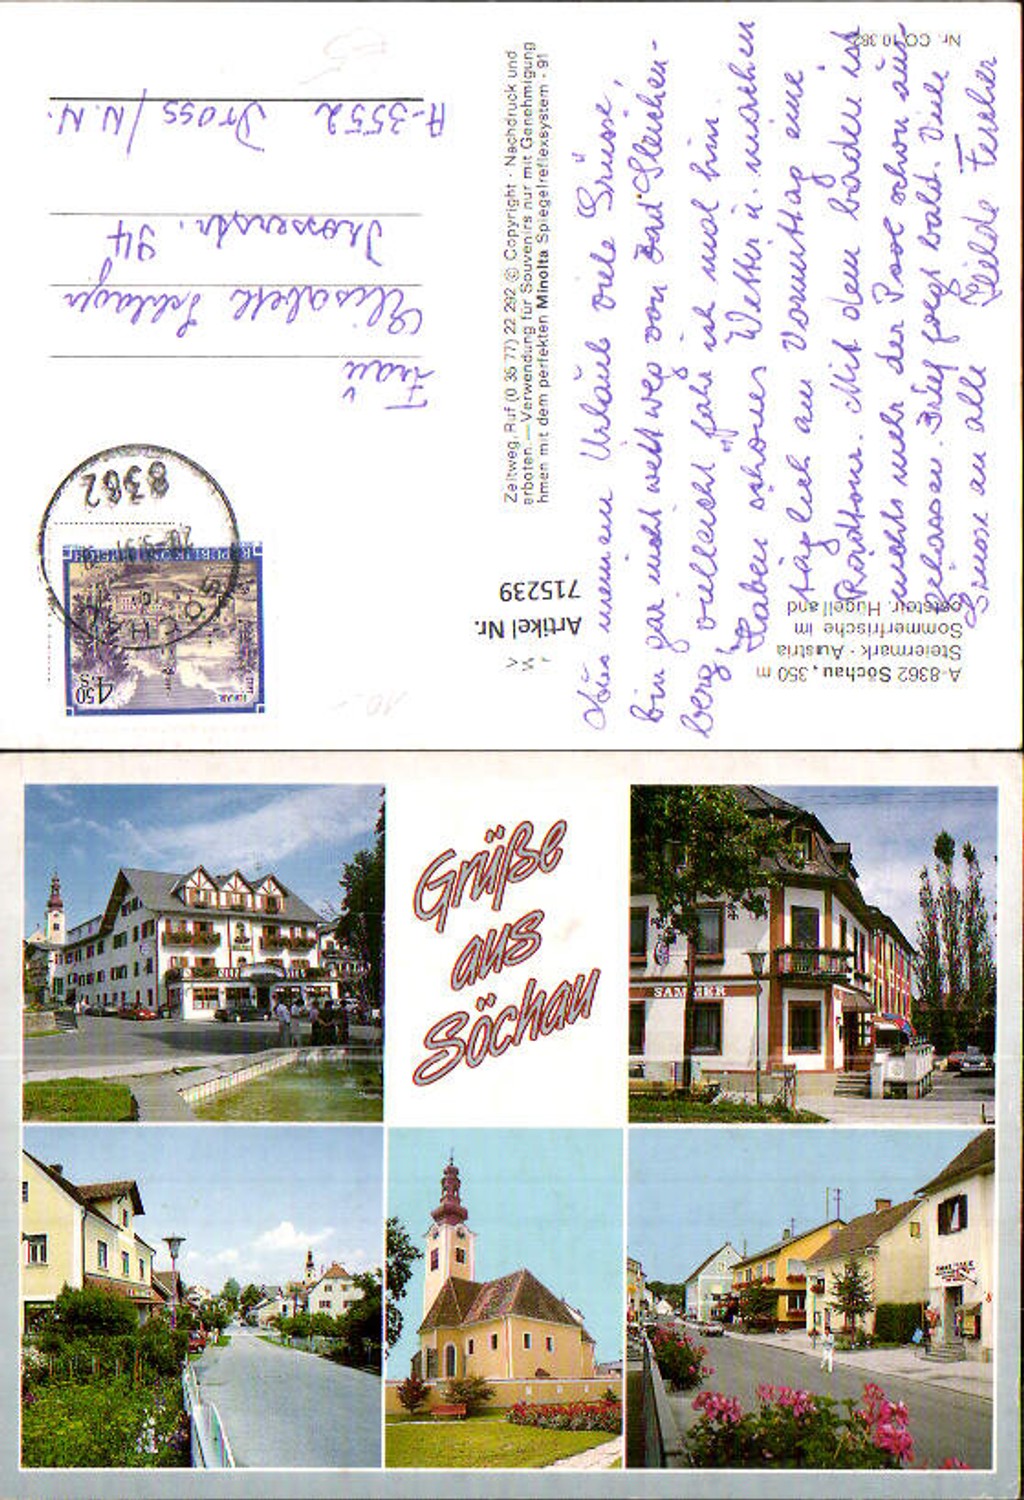 Nr. CO 10 382
Aus meinem Urlaub viele Grüsse,
bin gar nicht weit weg von Bad Gleichen-
berg, vielleicht fahr ich mal hin
Haben schönes Wetter u. machen
täglich am Vormittag eine
Radtour. Mit dem baden ist
nichts mehr der Pool schon aus-
gelassen. Brief folgt bald. Viele
Grüsse an alle
A-8362 Söchau, 350 m
Steiermark - Austria
Sommerfrische im
oststeir. Hügelland
Zeitweg, Ruf (0 35 77) 22 292 © Copyright - Nachdruck und
erboten. — Verwendung für Souvenirs nur mit Genehmigung
hmen mit dem perfekten Minolta Spiegelreflexsystem - 91
Artikel Nr.
715239
REPUBLIK ÖSTERREICH
4.50
S
8362
SÖCHAU
Frau
Elisabeth
94
A-3552 Dross / N.Ö.
10.-
Grüße
aus
Söchau
SAMMER